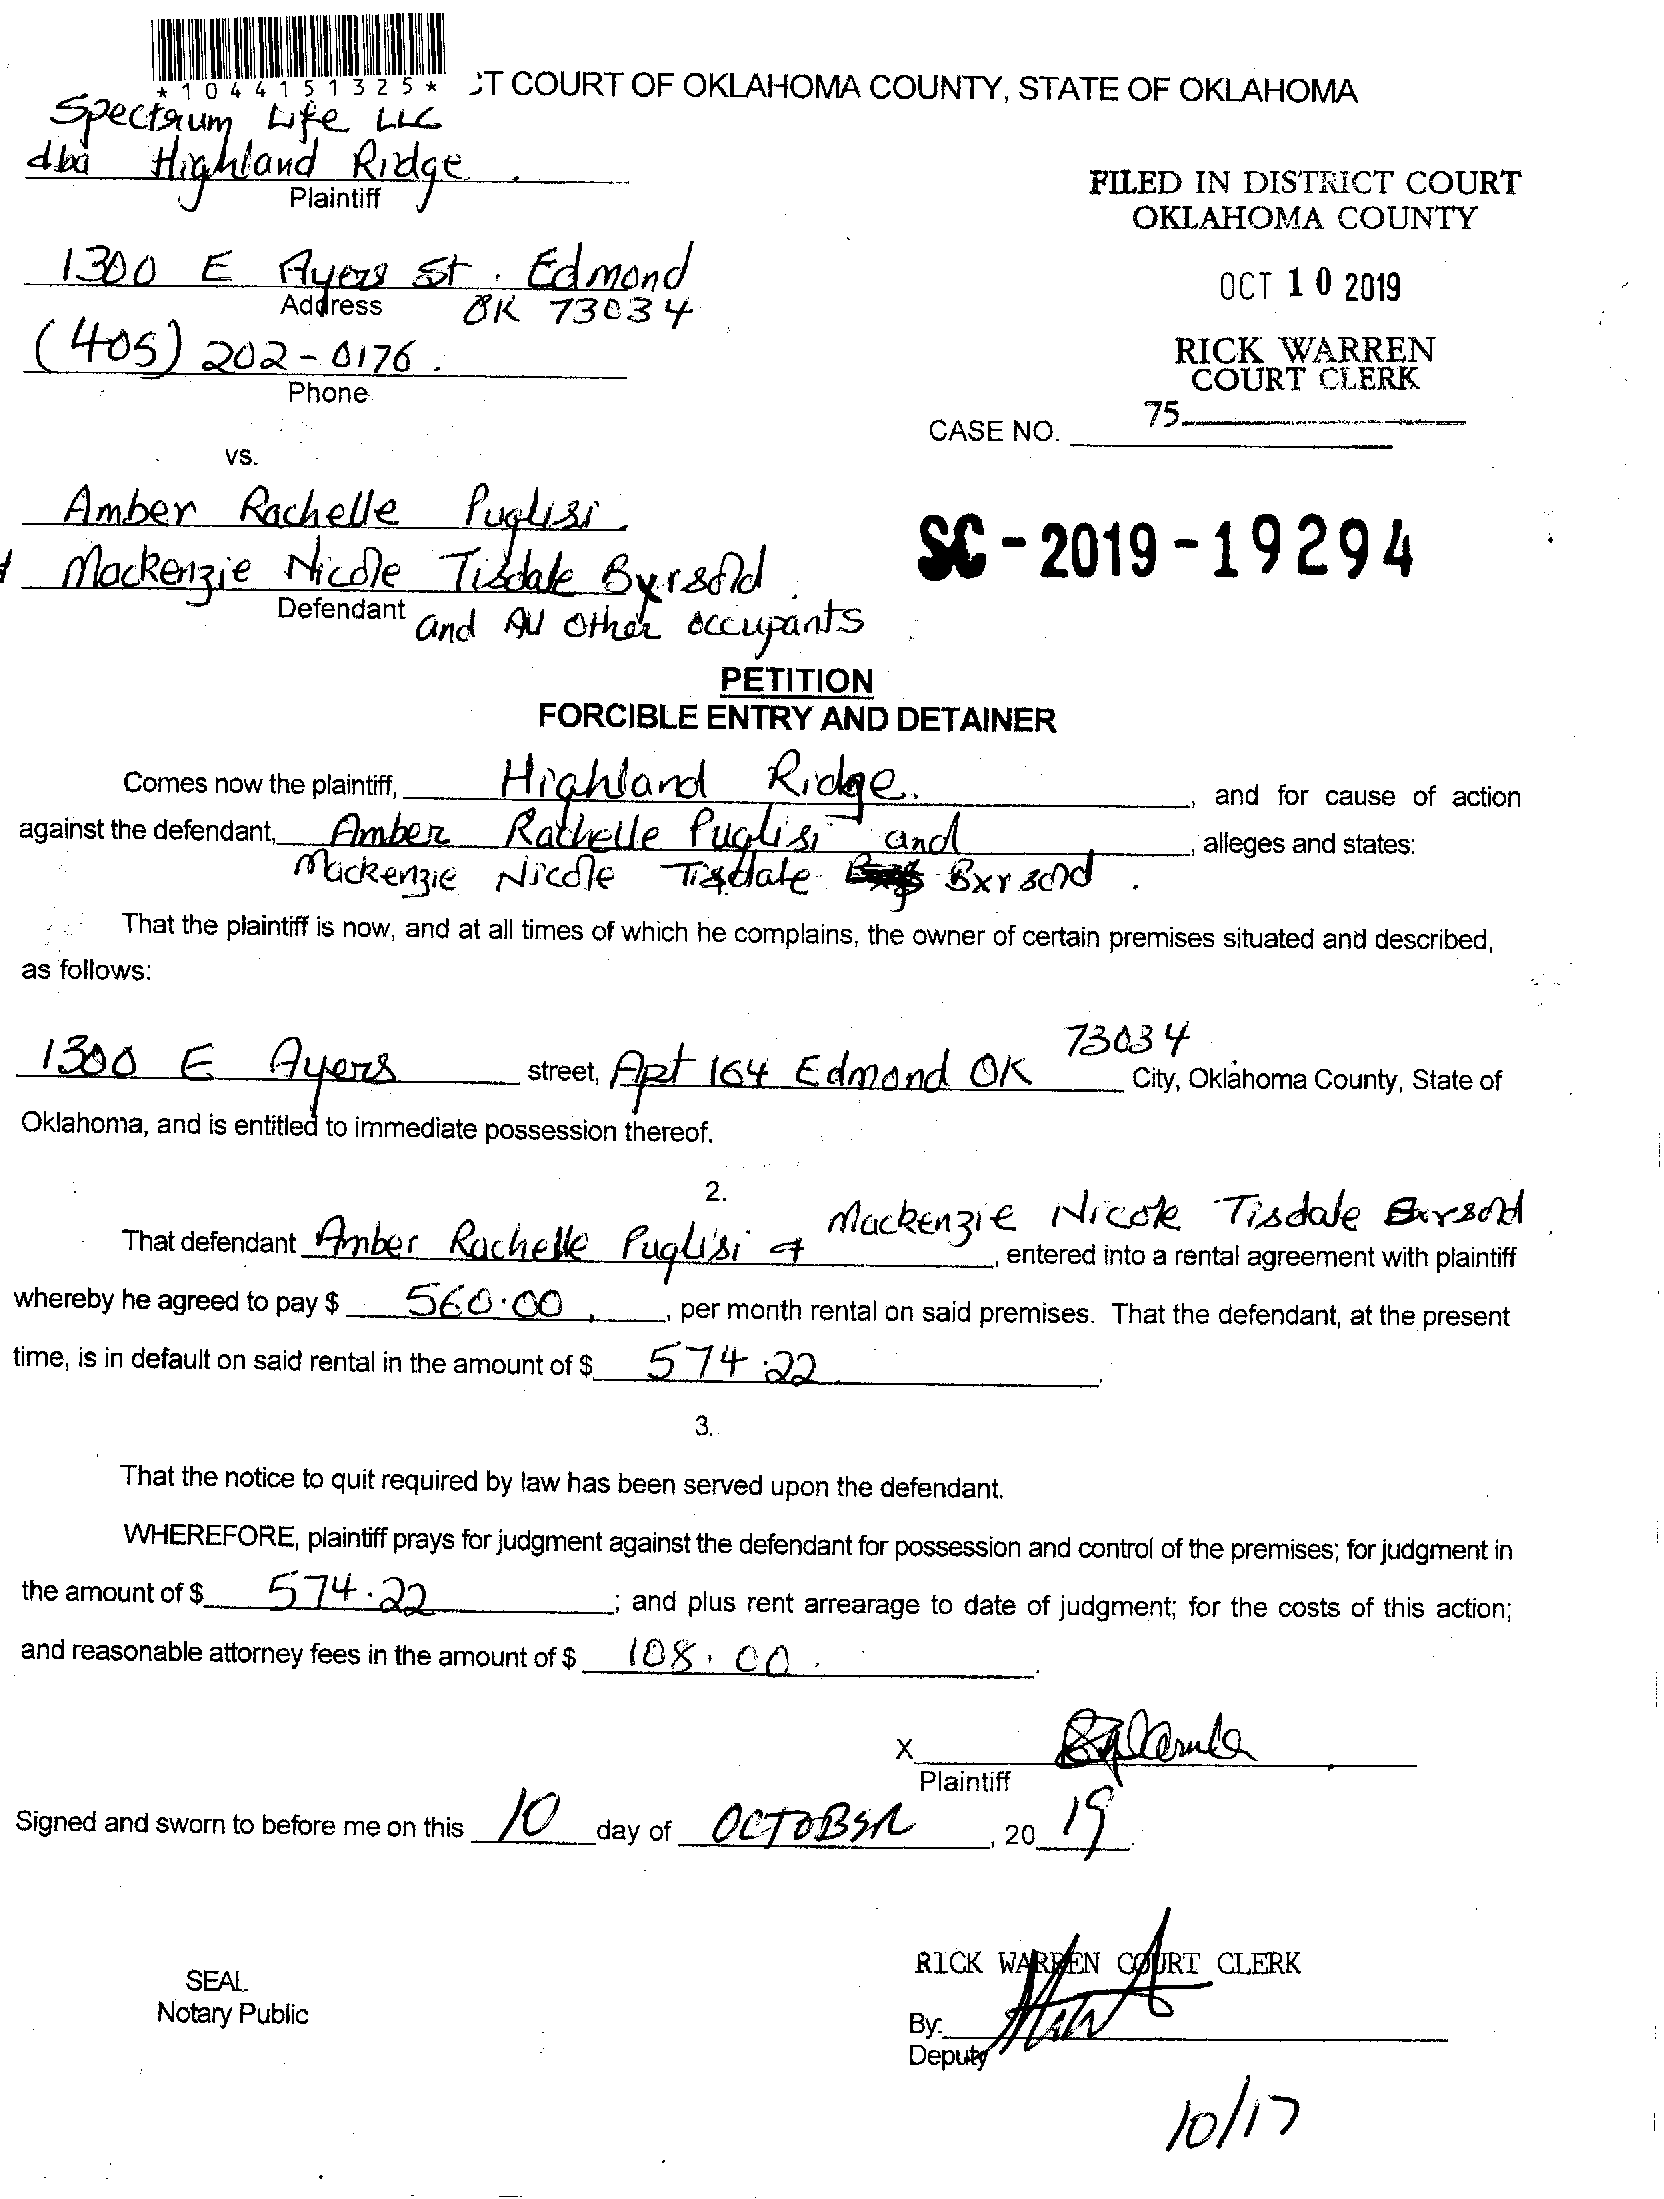 *1044151325*
CT COURT OF OKLAHOMA COUNTY, STATE OF OKLAHOMA
Spectrum Life LLC
dba Highland Ridge.
Plaintiff
FILED IN DISTRICT COURT
OKLAHOMA COUNTY
1300 E Ayers St. Edmond
Address OK 73034
OCT 10 2019
(405) 202-0176.
Phone
RICK WARREN
COURT CLERK
75
CASE NO.
vs.
Amber Rachelle Puglisi.
Mackenzie Nicole Tisdale Bxrsold.
Defendant and All other occupants
SC-2019-19294
PETITION
FORCIBLE ENTRY AND DETAINER
Comes now the plaintiff, Highland Ridge., and for cause of action
against the defendant, Amber Rachelle Puglisi and, alleges and states:
Mackenzie Nicole Tisdale Bxrsold.
That the plaintiff is now, and at all times of which he complains, the owner of certain premises situated and described,
as follows:
1300 E Ayers street, Apt 164 Edmond OK 73034 City, Oklahoma County, State of
Oklahoma, and is entitled to immediate possession thereof.
2.
Mackenzie Nicole Tisdale Bxrsold
That defendant Amber Rachelle Puglisi &, entered into a rental agreement with plaintiff
whereby he agreed to pay $ 560.00, per month rental on said premises. That the defendant, at the present
time, is in default on said rental in the amount of $ 574.22.
3.
That the notice to quit required by law has been served upon the defendant.
WHEREFORE, plaintiff prays for judgment against the defendant for possession and control of the premises; for judgment in
the amount of $ 574.22; and plus rent arrearage to date of judgment; for the costs of this action;
and reasonable attorney fees in the amount of $ 108.00.
X
Plaintiff
Signed and sworn to before me on this 10 day of OCTOBER, 20 19.
RICK WARREN COURT CLERK
SEAL
Notary Public
By:
Deputy
10/17